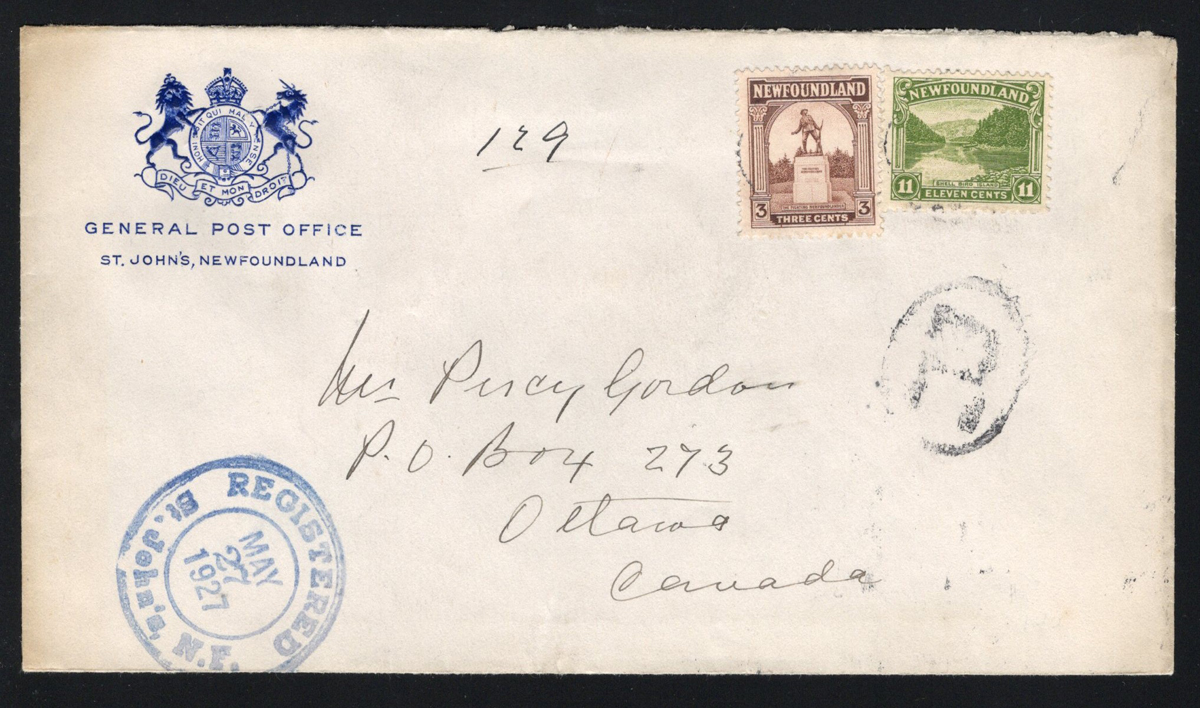 HONI SOIT QUI MAL Y PENSE
DIEU ET MON DROIT
GENERAL POST OFFICE
ST. JOHN'S, NEWFOUNDLAND
129
NEWFOUNDLAND
3 THREE CENTS 3
NEWFOUNDLAND
SHELL BIRD ISLAND
11 ELEVEN CENTS 11
R
Percy Gordon
P.O. Box 273
Ottawa
Canada
REGISTERED
St. John's, N.F.
MAY
27
1927